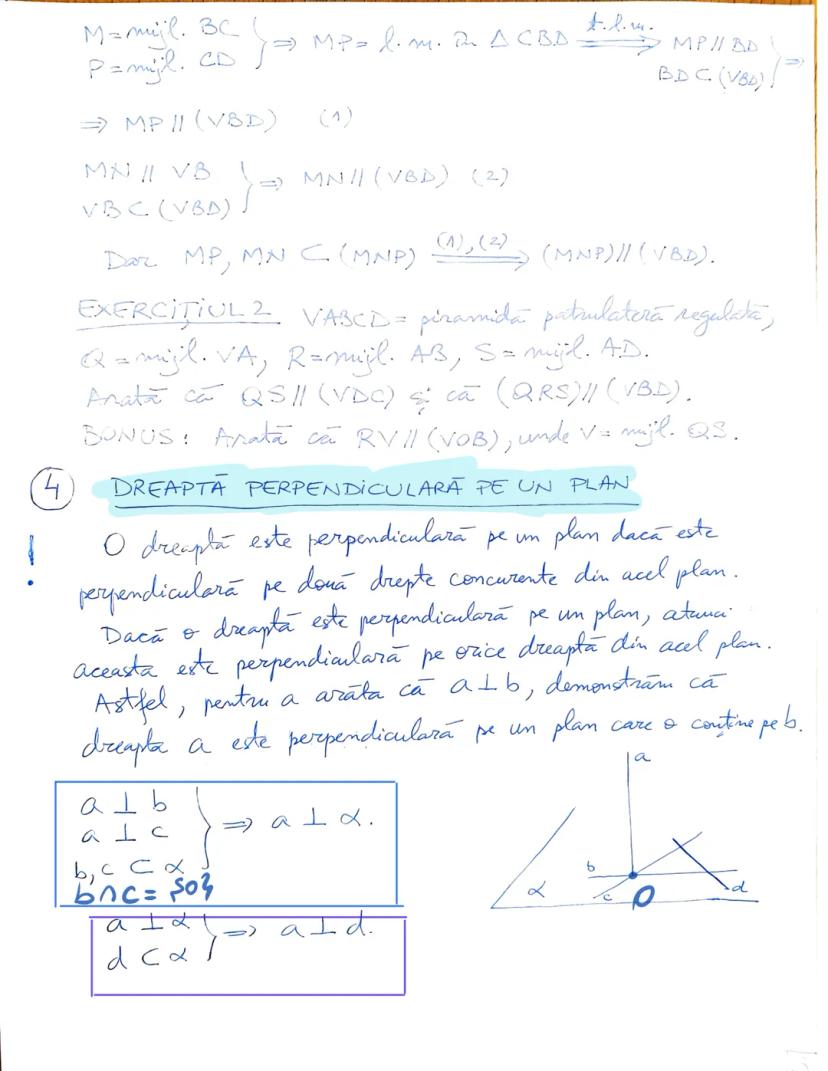 M = mijl. BC
P = mijl. CD } ⇒ MP = l.m. în Δ CBD t.l.m. ⇒ MP // BD
BD ⊂ (VBD) } ⇒
⇒ MP // (VBD) (1)
MN // VB
VB ⊂ (VBD) } ⇒ MN // (VBD) (2)
Dar MP, MN ⊂ (MNP) (1), (2) ⇒ (MNP) // (VBD).
EXERCIȚIUL 2 VABCD = piramidă patrulateră regulată,
Q = mijl. VA, R = mijl. AB, S = mijl. AD.
Arată că QS // (VDC) și că (QRS) // (VBD).
BONUS: Arată că RV // (VOB), unde V = mijl. QS.
4 DREAPTĂ PERPENDICULARĂ PE UN PLAN
! O dreaptă este perpendiculară pe un plan dacă este
perpendiculară pe două drepte concurente din acel plan.
Dacă o dreaptă este perpendiculară pe un plan, atunci
aceasta este perpendiculară pe orice dreaptă din acel plan.
Astfel, pentru a arăta că a ⊥ b, demonstrăm că
dreapta a este perpendiculară pe un plan care o conține pe b.
a ⊥ b
a ⊥ c } ⇒ a ⊥ α.
b, c ⊂ α
b ∩ c = {O}
a ⊥ α
d ⊂ α } ⇒ a ⊥ d.
a
b
α
c
O
d